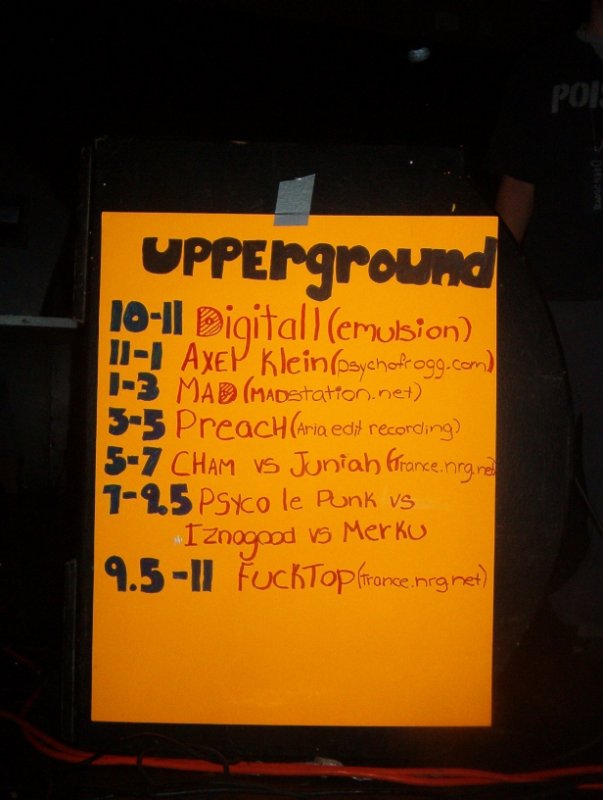 POIS
UPPERground
10-11 Digitall (emulsion)
11-1 AXEL Klein (psychofrogg.com)
1-3 MAD (MADstation.net)
3-5 PreacH (Aria edit recording)
5-7 CHAM vs Juniah (trance.nrg.net)
7-9.5 PSYCO le PunK vs
Iznogood vs MerKu
9.5-11 FUCKTOP (trance.nrg.net)